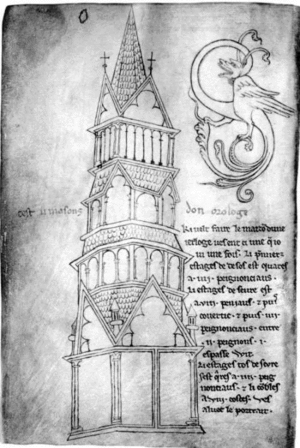 cest li masons don orologe
Ki velt faire le maizon dune
ierloge ves ent ci une q̄ io
vi une fois. Li p̄miers
estages de desos est quares
a .iiii. peignonciaus.
Li estages deseure est
a .viii. peniaus. & puis
covertic. & puis .iiii.
peignonciaus. entre
.ii. peignons .i.
espasse wit.
Li estages tos deseure
sest q̄res a .iiii. peig
nonciaus. & li cōbles
a .viii. costes. ves
aluoc le portrait.